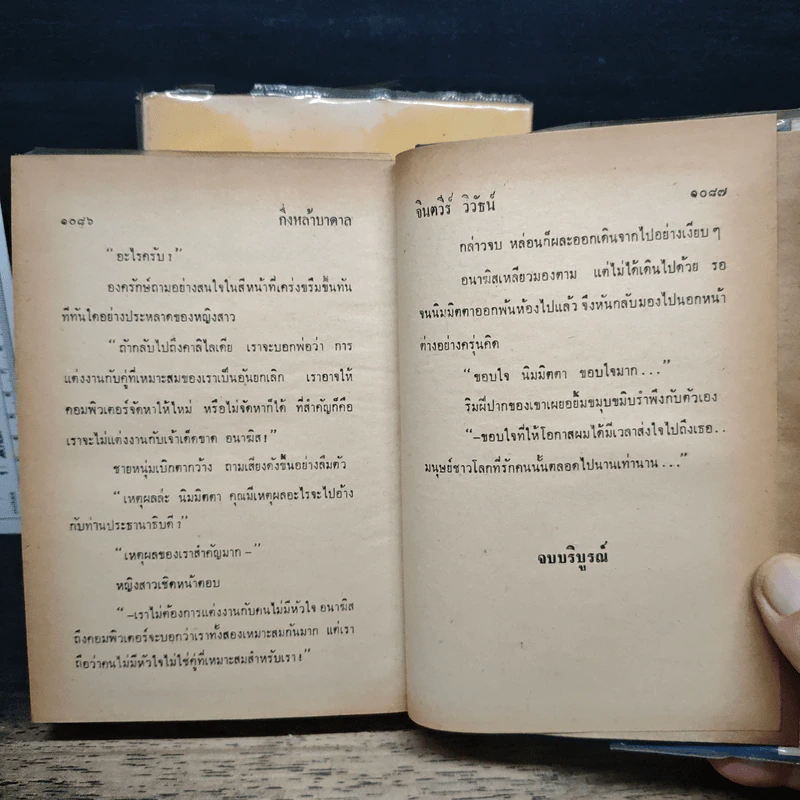 ๑๐๘๖ กึ่งหล้าบาดาล
“อะไรครับ?”
องครักษ์ถามอย่างสนใจในสีหน้าที่เคร่งขรึมขึ้นทัน
ทีทันใดอย่างประหลาดของหญิงสาว
“ถ้ากลับไปถึงคาลิไลเดีย เราจะบอกพ่อว่า การ
แต่งงานกับคู่ที่เหมาะสมของเราเป็นอันยกเลิก เราอาจให้
คอมพิวเตอร์จัดหาให้ใหม่ หรือไม่จัดหาก็ได้ ที่สำคัญก็คือ
เราจะไม่แต่งงานกับเจ้าเด็ดขาด อนาฆิส!”
ชายหนุ่มเบิกตากว้าง ถามเสียงดังขึ้นอย่างลืมตัว
“เหตุผลล่ะ นิมมิตตา คุณมีเหตุผลอะไรจะไปอ้าง
กับท่านประธานาธิบดี?”
“เหตุผลของเราสำคัญมาก–”
หญิงสาวเชิดหน้าตอบ
“–เราไม่ต้องการแต่งงานกับคนไม่มีหัวใจ อนาฆิส
ถึงคอมพิวเตอร์จะบอกว่าเราทั้งสองเหมาะสมกันมาก แต่เรา
ถือว่าคนไม่มีหัวใจไม่ใช่คู่ที่เหมาะสมสำหรับเรา!”
จินตวีร์ วิวัธน์ ๑๐๘๗
กล่าวจบ หล่อนก็ผละออกเดินจากไปอย่างเงียบๆ
อนาฆิสเหลียวมองตาม แต่ไม่ได้เดินไปด้วย รอ
จนนิมมิตตาออกพ้นห้องไปแล้ว จึงหันกลับมองไปนอกหน้า
ต่างอย่างครุ่นคิด
“ขอบใจ นิมมิตตา ขอบใจมาก...”
ริมฝีปากของเขาเผยอยิ้มขมุบขมิบรำพึงกับตัวเอง
“–ขอบใจที่ให้โอกาสผมได้มีเวลาส่งใจไปถึงเธอ..
มนุษย์ชาวโลกที่รักคนนั้นตลอดไปนานเท่านาน...”
จบบริบูรณ์